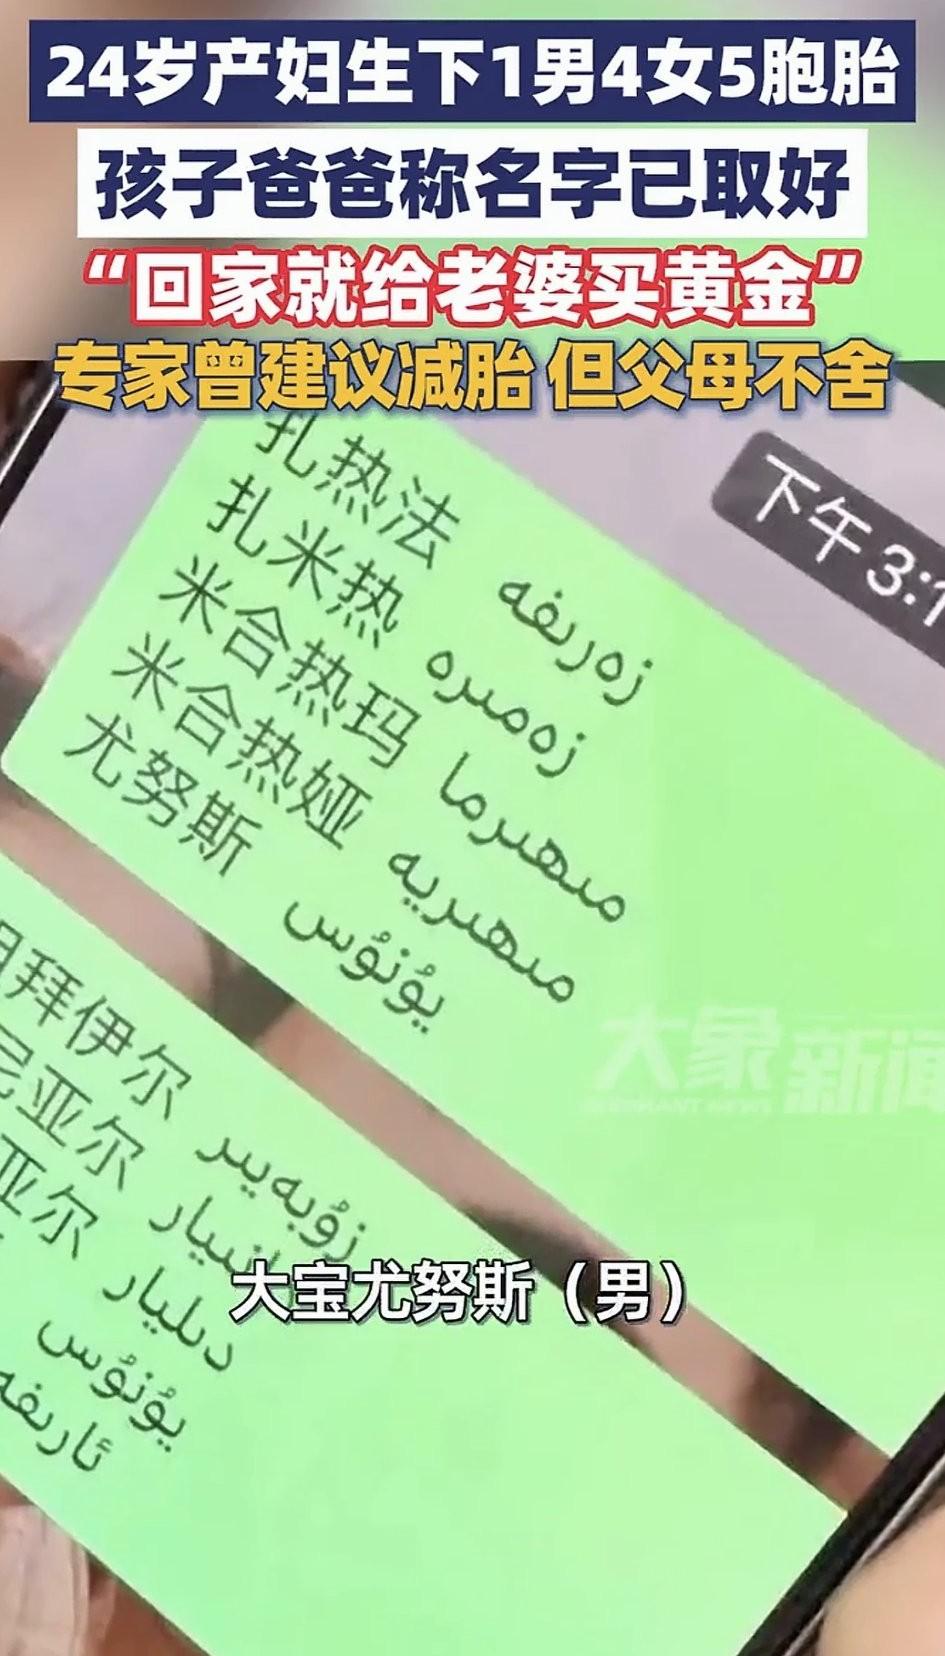 24岁产妇生下1男4女5胞胎
孩子爸爸称名字已取好
“回家就给老婆买黄金”
专家曾建议减胎 但父母不舍
下午3:1
扎热法 زەرىفە
扎米热 زەمىرە
米合热玛 مىھىرما
米合热娅 مىھىرىيە
尤努斯 يۇنۇس
大象新闻
ELEPHANT NEWS
拜伊尔 زۇبەيىر
尼亚尔
亚尔 دىليار
يۇنۇس
ئارىفە
大宝尤努斯（男）